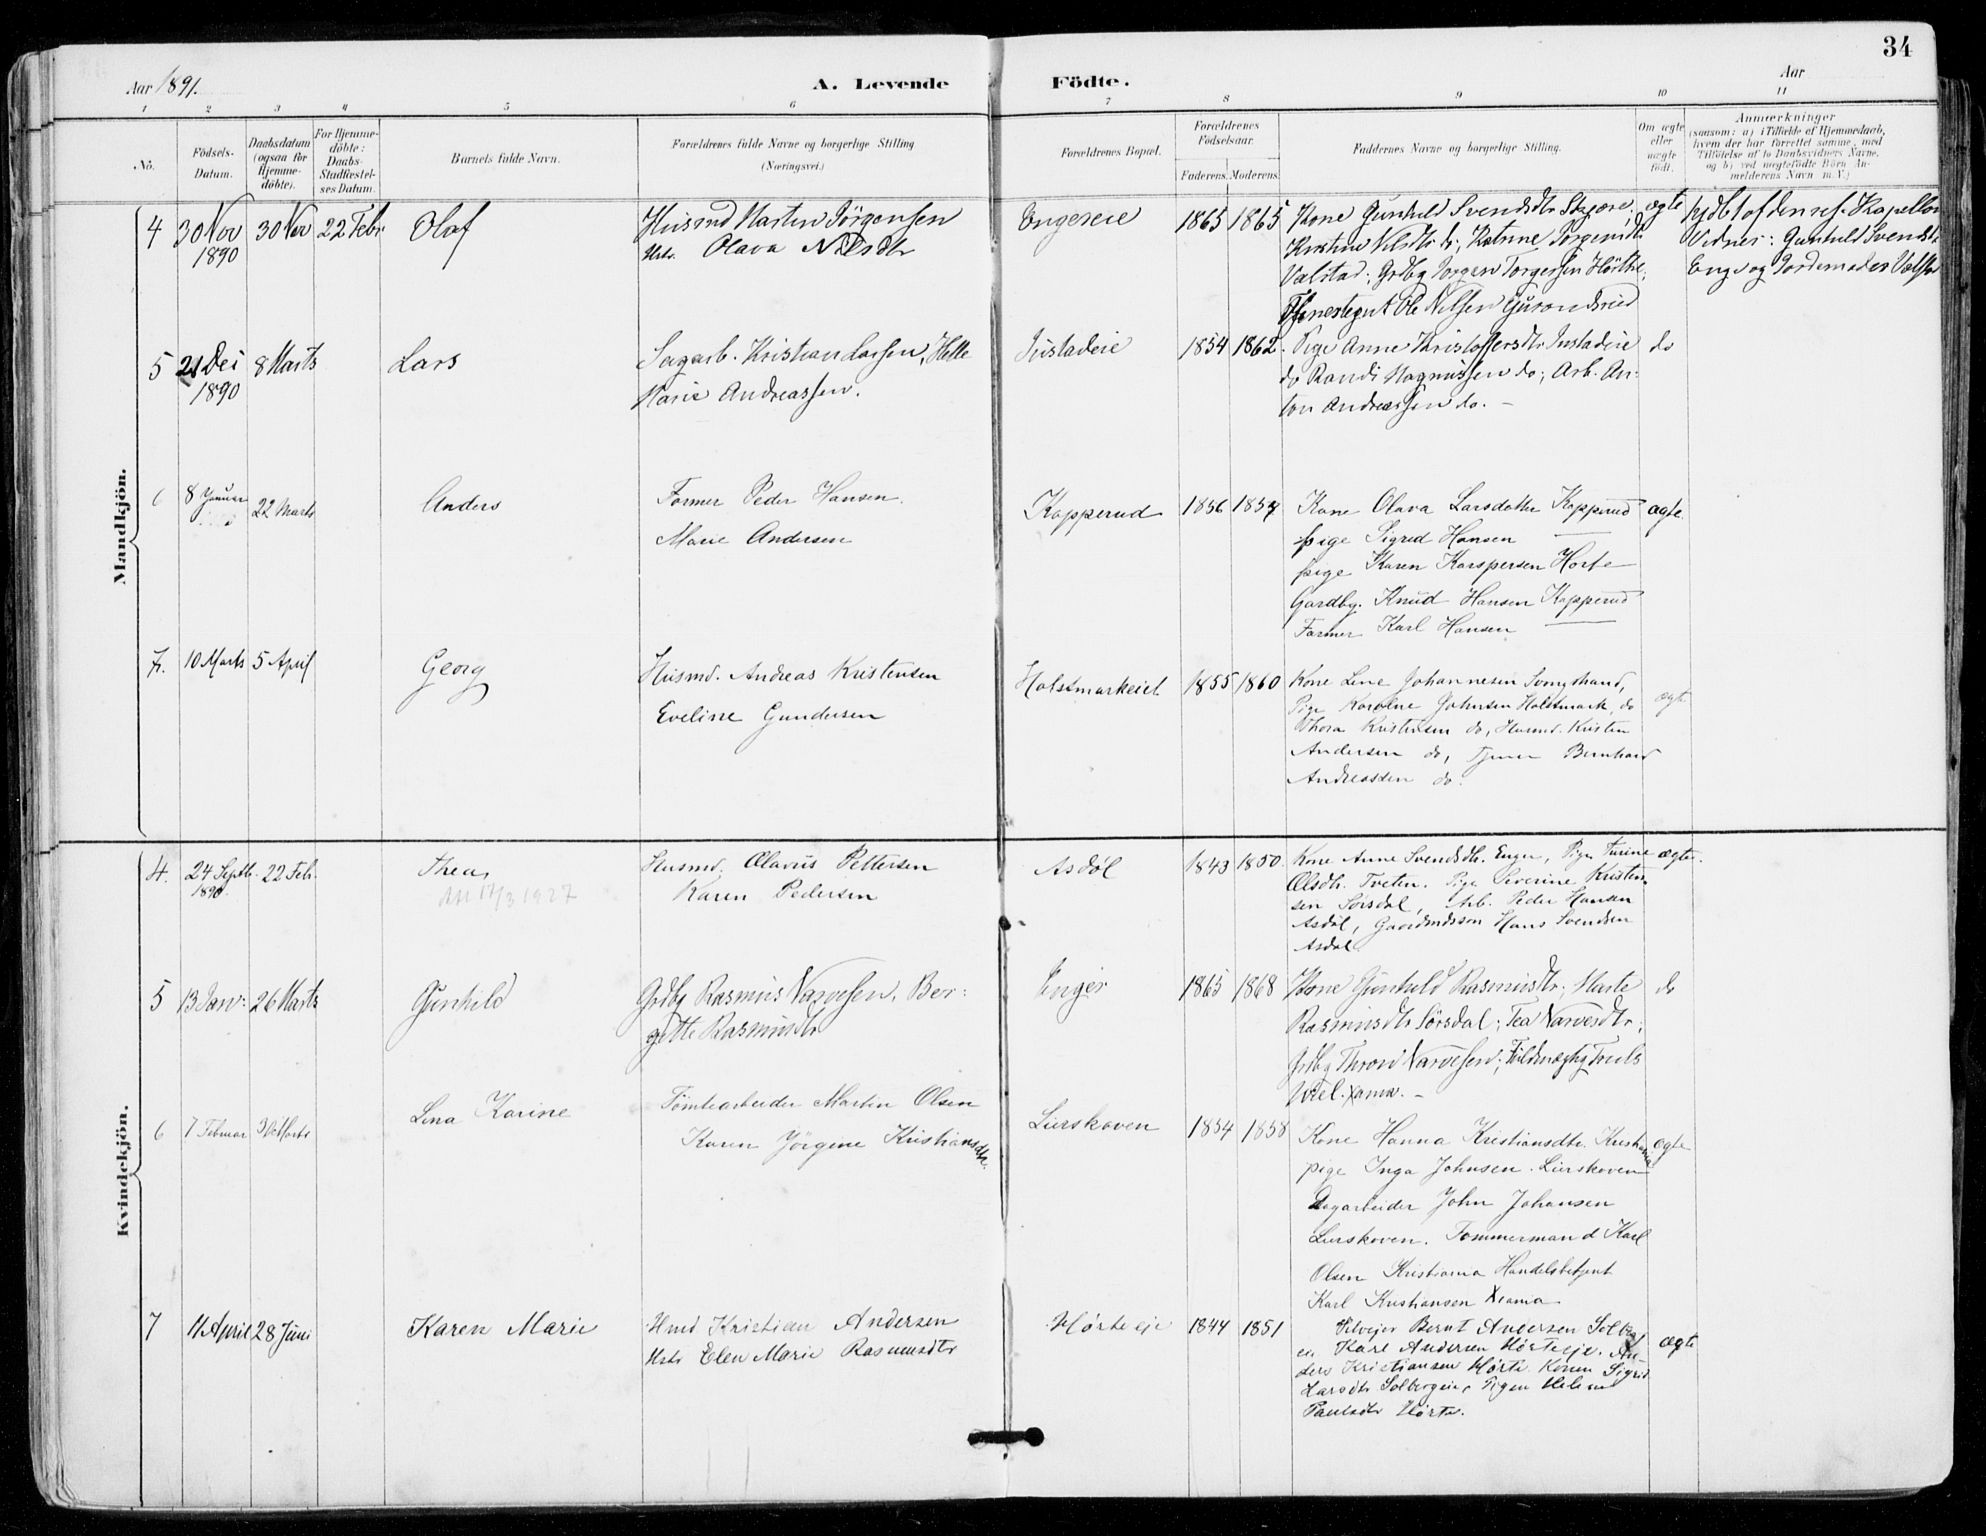 34
Aar 1891.
A. Levende Födte.
Aar
1 2 3 4 5 6 7 8 9 10 11
No.
Födsels-Datum.
Daabsdatum (ogsaa for Hjemme-döbte).
For Hjemme-döbte: Daabs-Stadfæstel-ses Datum.
Barnets fulde Navn.
Forældrenes fulde Navne og borgerlige Stilling (Næringsvei.)
Forældrenes Bopæl.
Forældrenes Födselsaar.
Faderens. Moderens.
Faddernes Navne og borgerlige Stilling.
Om ægte eller uægte födt.
Anmærkninger
(saasom: a) i Tilfælde af Hjemmedaab,
hvem der har forrettet samme, med
Tilföielse af to Daabsvidners Navne,
og b) ved uegtefödte Börn An-
melderens Navn m. V.)
Mandkjön.
4 30 Nov 1890 30 Nov 22 Febr Olaf
Husmd Martin Jörgensen
Hstr. Olava Nilsdtr
Engereie 1865 1865
Kone Gunhild Svendsdtr
Kristine Nilsdtr do; Katrine Torgersdtr
Valstad; Grdbg Jörgen Torgersen Hörthe;
Tjenestegut Ole Nilsen
ægte
hjdbt af den res. Kapellan
Vidner: Gunhild Svendsdtr
Enge og Jordemoder
5 21 Dec 1890 8 Marts Lars
Sagarb. Kristian Larsen, Helle
Marie Andreassen.
Justadeie 1854 1862.
Pige Anne Kristoffersdtr Justadeie
do Randi Magnussen do; Arb. An-
ton Andreassen do. –
do
6 8 Januar 22 Marts Anders
Former Peder Hansen.
Marie Andersen
Kopperud 1856 1857
Kone Olava Larsdatter Kopperud
pige Sigrid Hansen
pige Karen Karspersen Horte
Gardbg. Knud Hansen Kopperud
Former Karl Hansen
ægte.
7. 10 Marts 5 April Georg
Husmd. Andreas Kristensen
Eveline Gundersen
Holstmarkeiet 1855 1860
Kone Line Johannesen Svangstrand,
Pige Karoline Johnsen Holstmark, do
Thora Kristensen do, Husmd. Kristen
Andersen do, Tjener Bernhard
Andreassen do.
ægte
Kvindekjön.
4. 24 Septb. 1890. 22 Feb. Thea,
17/3 1927
Husmd. Olavus Pettersen
Karen Pedersen
Asdöl 1843 1850
Kone Anne Svendsdtr. Enger, Pige Turine
Olsdtr. Tveten. Pige Severine Kristen-
sen Sörsdal, Arb. Peder Hansen
Asdöl, Gaardmdssön Hans Svendsen
Asdöl.
ægte.
5 13 Jan: 26 Marts Gunhild
Grdbg Rasmus Narvesen, Ber:
gette Rasmusdtr
Enger 1865 1868
Kone Gunhild Rasmusdtr; Marte
Rasmusdtr Sörsdal; Tea Narvesdtr;
Grdbg Thron Narvesen; Truls
Xania. –
do
6 7 Februar Marts Lina Karine
Tömtearbeider Martin Olsen
Karen Jörgine Kristiansdtr.
Lierskoven 1854 1858
Kone Hanna Kristiansdtr. Kristiania
pige Inga Johnsen. Lierskoven
Dagarbeider John Johansen
Lierskoven. Tommermand Karl
Olsen Kristiania Handelsbetjent
Karl Kristiansen Xiania
ægte
7 11 April 28 Juni Karen Marie
Hmd Kristian Andersen
Hstr Elen Marie Rasmusdtr
Hörteeje 1844 1851
Selvejer Bernt Andersen Solberg
eie, Karl Andersen Hörteeje. An-
ders Kristiansen Hörte. Konen Sigrid
Larsdtr Solbergeie, Pigen Helene
Paulsdtr Hörte.
ægte